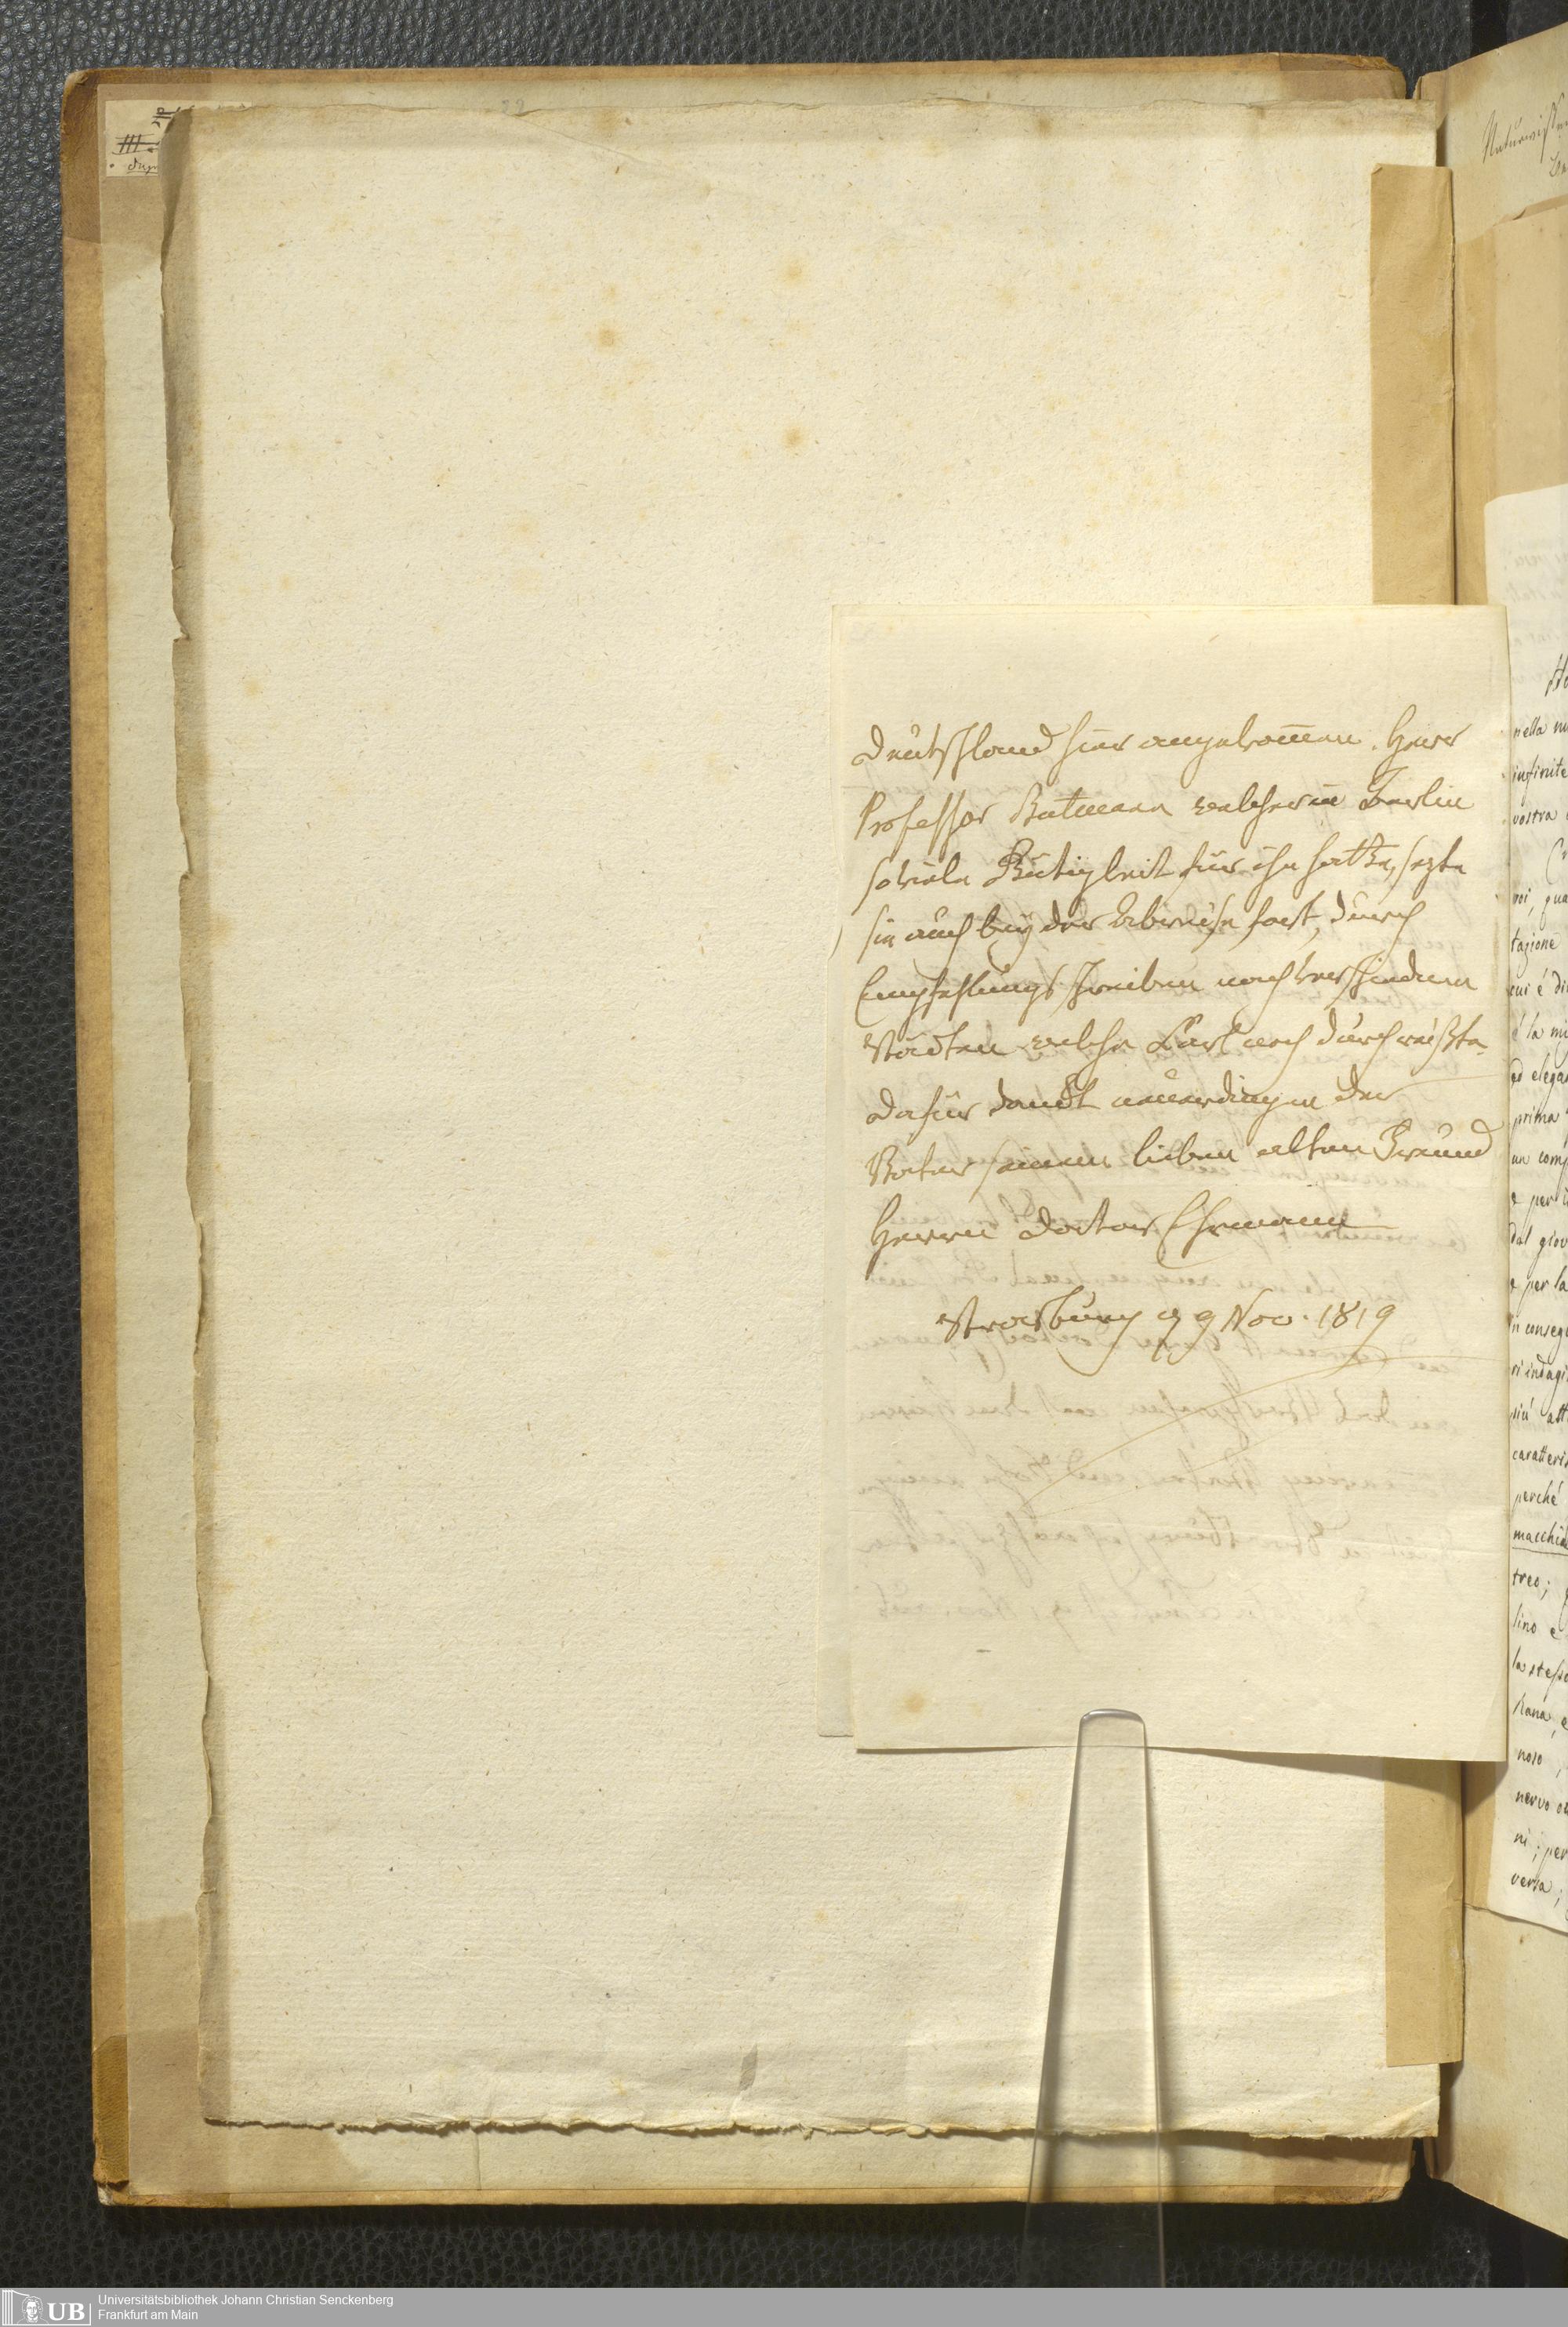 22
Deutschland hier angekom̅en. Herr
Professor Butmann welcher in Berlin
so viele Gütigkeit für ihn hatte, sezte
sie auch bey der Abreise fort, durch
Empfehlungs schreiben nach verschiedenen
Städten welche Carl noch durchreißte.
dafür dankt neuerdingen der
Vater seinem lieben alten Freund
Herrn Doctor Ehrmann
Strasburg 9 Nov. 1819
nella
infinite
vostra
voi, qua
tazione
cui é di
é la
ed elega
prima
un comp
e per
dal giov
e per la
in conseg
ri indagi
più att
caratteri
perché
macchi
treo;
lino e
la stesso
Rana, e
noso,
nervo
ni; per
versa;
Universitätsbibliothek Johann Christian Senckenberg
Frankfurt am Main
UB